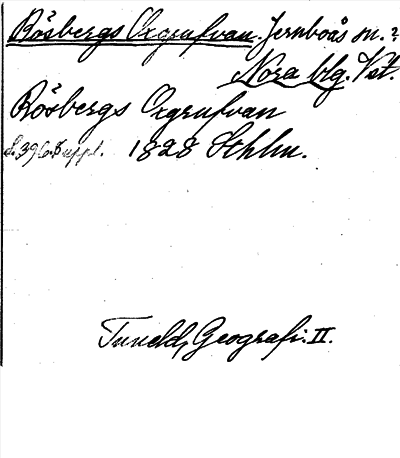 Rösbergs Oxgrufvan. Jernboås sn.?
Nora blg. Vst.
Rösbergs Oxgrufvan
S. 396. Suppl. 1828 Sthlm.
Tuneld, Geografi. II.